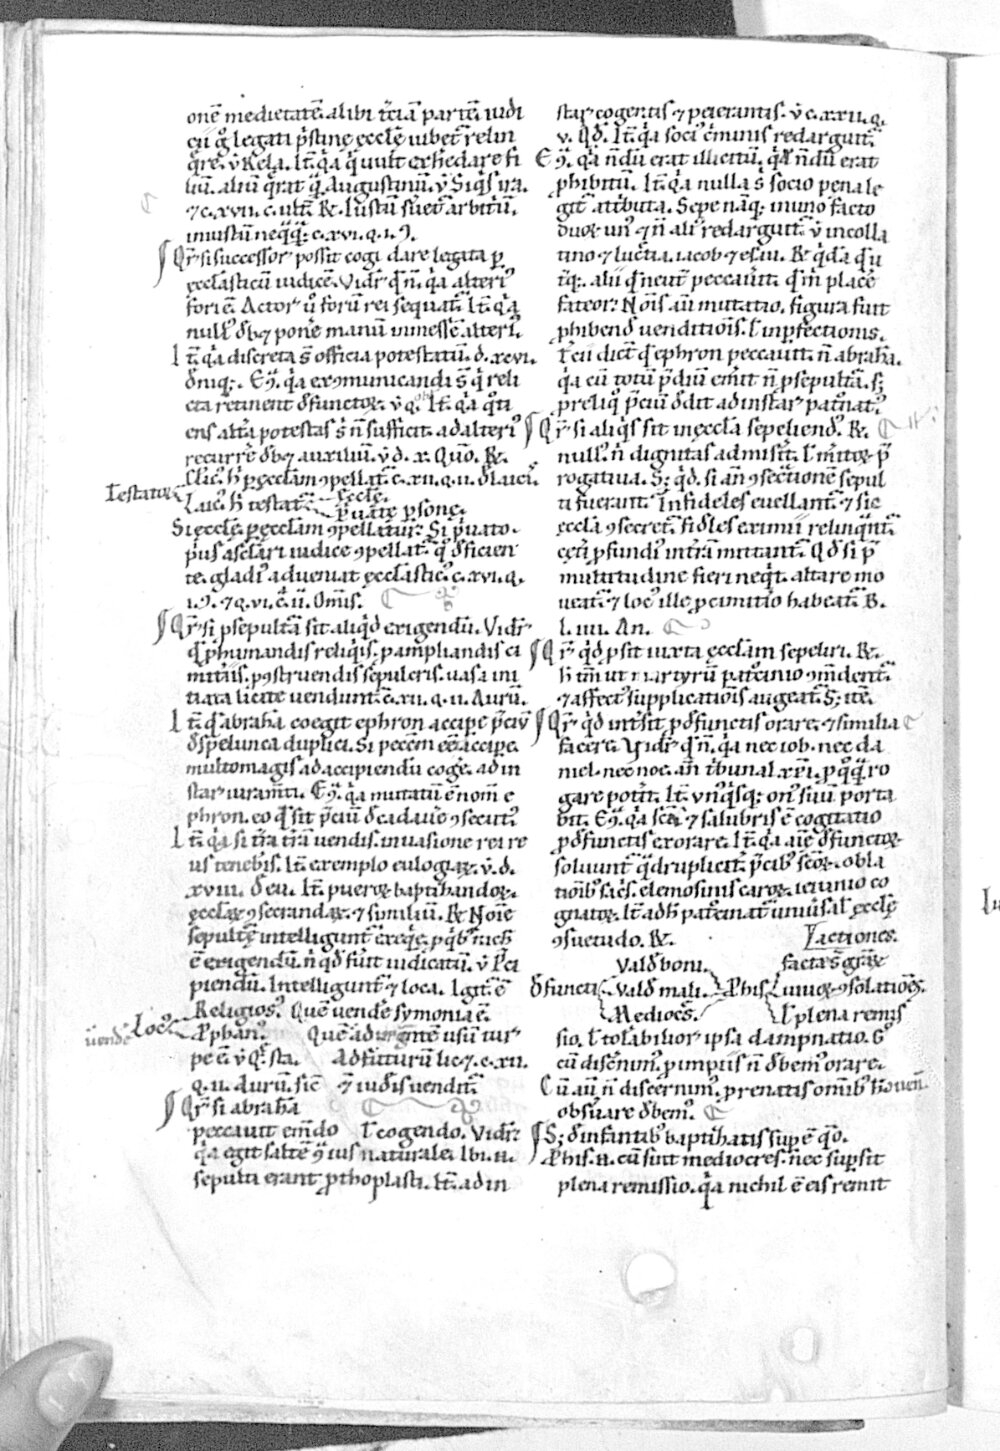 onē medietatē. alibi t̄ciā partē. iudi
cii ḡ legati p̄stīne ęccłę iubet᷑ relin
q̄re. v̄ Rela. It̄. q̄a q̄ uult exhedare fi
liū. aliū q̄rat q̄ā Augustinū. v̄ Siq̄s ira.
⁊ c. xvii. c. ult̄. R̄. Iustū fuet᷑ arbit̄ū.
iniustū neq̄q̄;. c. xvi. q. i. ꝯ.
Qr̄. si successor possit cogi dare legata p̄
ęccl̄asticū iudicē. Vid᷑r q̄ n̄. q̄a alteri᷒
fori ē. Actor u̅ forū rei sequat᷑. It̄. q̄a
null᷒ dȝ ponē manū in messē alteri᷒.
It̄. q̄a discreta s̄ officia potestatū. d. xcvi.
Dn̄iq;. E ꝯ. q̄a exꝯmunicandi s̄ q̄ reli
cta retinent defunctoꝝ. v̄ q. It̄. q̄a q̄ti
ens alt̄a potestas s̄ n̄ sufficit. ad alteri᷒
recurrē dȝ auxiliū. v̄ d. x. Quō. R̄.
Cl̄ic᷒. h̄ p̄ ęccl̄am ꝯpellat᷑. c. xii. q. ii. De laici.
Testatoꝝ
Laic᷒. h̄ testat᷑
Ęccl̄ę.
p̄uatę psonę.
Si ęccl̄ę. p ęccl̄am ꝯpellatur. Si p̄uato.
pus a scl̄ari iudice ꝯpellat᷑. q̄ deficien
te. gladi᷒ adveniat ęccl̄astic᷒. c. xvi. q.
i. ꝯ. ⁊ q. vi. c̄. ii. Om̄is.
Qr̄. si p sepultā sit aliq̄d exigendū. Vid᷑r
q̄ p humandis reliq̄is. p ampliandis ci
mit̄iis. p ꝯstruendis sepulcris. uasa ini
tiata licite uendunt᷑. c. xii. q. ii. Aurū.
It̄. q̄ abrahā coegit ephron accipe p̄ciū
de spelunca duplici. Si peccm̄ eēt accipe.
multomagis ad accipiendū cogē. ad in
star iuram̄ti. E ꝯ. q̄a mutatū ē nom̄ e
phron. eo q̄ sit p̄ciū de cadauē ꝯsecut᷒.
It̄. q̄a si t̄ra t̄rā uendis. inuasione rei re
us tenebis. It̄. exemplo eulogiaꝝ. v̄. d.
xviii. de eu. It̄. pueroꝝ baptizandoꝝ.
ęccl̄aꝝ ꝯsecrandaꝝ. ⁊ similiū. R̄. Noīe
sepultę intelligunt᷑ exeq̄ę. p q̄b᷒ nichil
ē exigendū. n̄ q̄d fuit iudicatū. v̄ P̄ci
piendū. Intelligunt᷑ ⁊ loca. Igit᷑ ē
uendē
Loc᷒.
Religios᷒. Quē vendē symonia ē.
P̄phan᷒. Quē ad urgn̄tē usū tur
pe ē. v̄ Q. sta. Ad futurū lic⁊. c. xii.
q. ii. Aurū. sic̄ ⁊ iudīs uendit᷑.
Qr̄. si abrahā
peccauit em̄do l̄ cogendo. Vid᷑r.
q̄a egit saltē ꝯ ius naturale. Ibi. n̄.
sepulti erant p̄thoplasti. It̄. ad in
star cogentis ⁊ peierantis. v̄ c. xxii. q.
v. Qd̄. It̄. q̄a socii c̄minis redarguit᷑.
E ꝯ. q̄a n̄dū erat illicitū. q̄a n̄dū erat
phibitū. It̄. q̄a nulla s̄ socio pena le
git᷑ att̄buta. Sepe nāq; in uno facto
duoꝝ un᷒ ⁊ n̄ ali᷒ redarguit᷑. v̄ in colla
tino ⁊ luc̄tia. iacob ⁊ esau. R̄. q̄dā q̄ ū
t̄q;. alii q̄ neut̄ peccauit. q̄ m̄ placē
fateor. Noīs aū mutatio. figura fuit
phibendę uenditiōis. l̄ inpfectionis.
T̄cii dict̄ q̄ ephron peccauit. n̄ abrahā.
q̄a cū totū p̄diū emit n̄ p sepultā. s;
p reliq᷒ p̄ciū dedit ad instar pat̄nat᷒.
Qr̄. si aliq̄s sit in ęccl̄a sepeliend᷒. R̄.
null᷒. n̄ dignitas admis̄it. l̄ m̄itoꝝ p̄
rogatiua. S; q̄d. si añ ꝯsec̄tionē sepul
ti fuerant. Infideles euellant᷑. ⁊ sic
ęccl̄a ꝯsecret᷑. fideles eximii relinq̄nt᷑.
cęt̄i p fundi᷒ int̄ra mittant᷑. Qd̄ si p̄
multitudine fieri neq̄t. altare mo
ueat᷑. ⁊ loc᷒ ille p cimit̄io habeat᷑. B.
l. iiii. An.
Qr̄. q̄d p sit iuxta ęccl̄am sepeliri. R̄.
h̄ tm̄ ut martyrū pat̄cinio ꝯm̄dent᷑.
⁊ affect᷒ supplicatiōis augeat᷑. S; itē.
Qr̄. q̄d int̄sit p defunctis orare. ⁊ similia
facere. Vid᷑r q̄ n̄. q̄a nec iob. nec da
niel. nec noe. añ t̄bunal xp̄i. p q̄q̄ā ro
gare pot̄it. It̄. vn᷒q̄sq; on᷒ suū porta
bit. E ꝯ. q̄a scā ⁊ salubris ē cogitatio
p defunctis exorare. It̄. q̄a aīę defunctoꝝ
soluunt᷑ q̄druplicit̄. p̄cib᷒ scōꝝ. obla
tiōib᷒ sac̄. elemosinis caroꝝ. ieiunio co
gnatoꝝ. It̄. ad h̄ pat̄cinat᷑ uniūsał ęccl̄ę
ꝯsuetudo. R̄.
Lactiones.
Defuncti
valde boni.
valde mali.
Mediocēs.
P̄ his
factę s̄ gr̄aꝝ
viuoꝝ ꝯsolatiōes.
l̄ plena remis
sio. l̄ tolabilior ipsa dampnatio. G᷒
cū discn̄im᷒. p impiis n̄ dbem᷒ orare.
Cū aū n̄ discernim᷒. p renatis om̄ib᷒ h̄ ꝯuen.
obs̄uare dbem᷒.
S; de infantib᷒ baptizatis sup ē q̄o.
P̄ his. n̄. cū sint mediocres. n̄ec sup sit
plena remissio. q̄a nichil ē eis remit